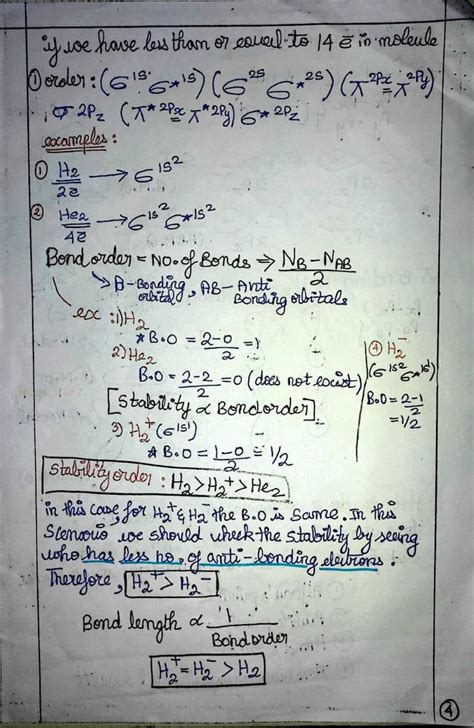 if we have less than or equal to 14 ē in molecule
① order: (σ1s σ*1s) (σ2s σ*2s) (π2px = π2py)
, σ 2Pz (π*2px = π*2py) σ*2Pz
examples:
① H2 / 2ē → σ1s²
② He2 / 4ē → σ1s² σ*1s²
Bond order = No. of Bonds ⇒ NB - NAB / 2
↘ B-Bonding orbital, AB-Anti Bonding orbitals
ex: 1) H2
* B.O = 2-0 / 2 = 1
2) He2
B.O = 2-2 / 2 = 0 (does not exist)
[Stability ∝ Bond order]
3) H2+ (σ1s¹)
* B.O = 1-0 / 2 = 1/2
④ H2-
(σ1s² σ*1s¹)
B.O = 2-1 / 2
= 1/2
Stability order: H2 > H2+ > He2
in this case, for H2+ & H2- the B.O is same. In this
Scenario we should check the stability by seeing
who has less no. of anti-bonding electrons.
Therefore, H2+ > H2-
Bond length ∝ 1 / Bond order
H2+ = H2- > H2
④